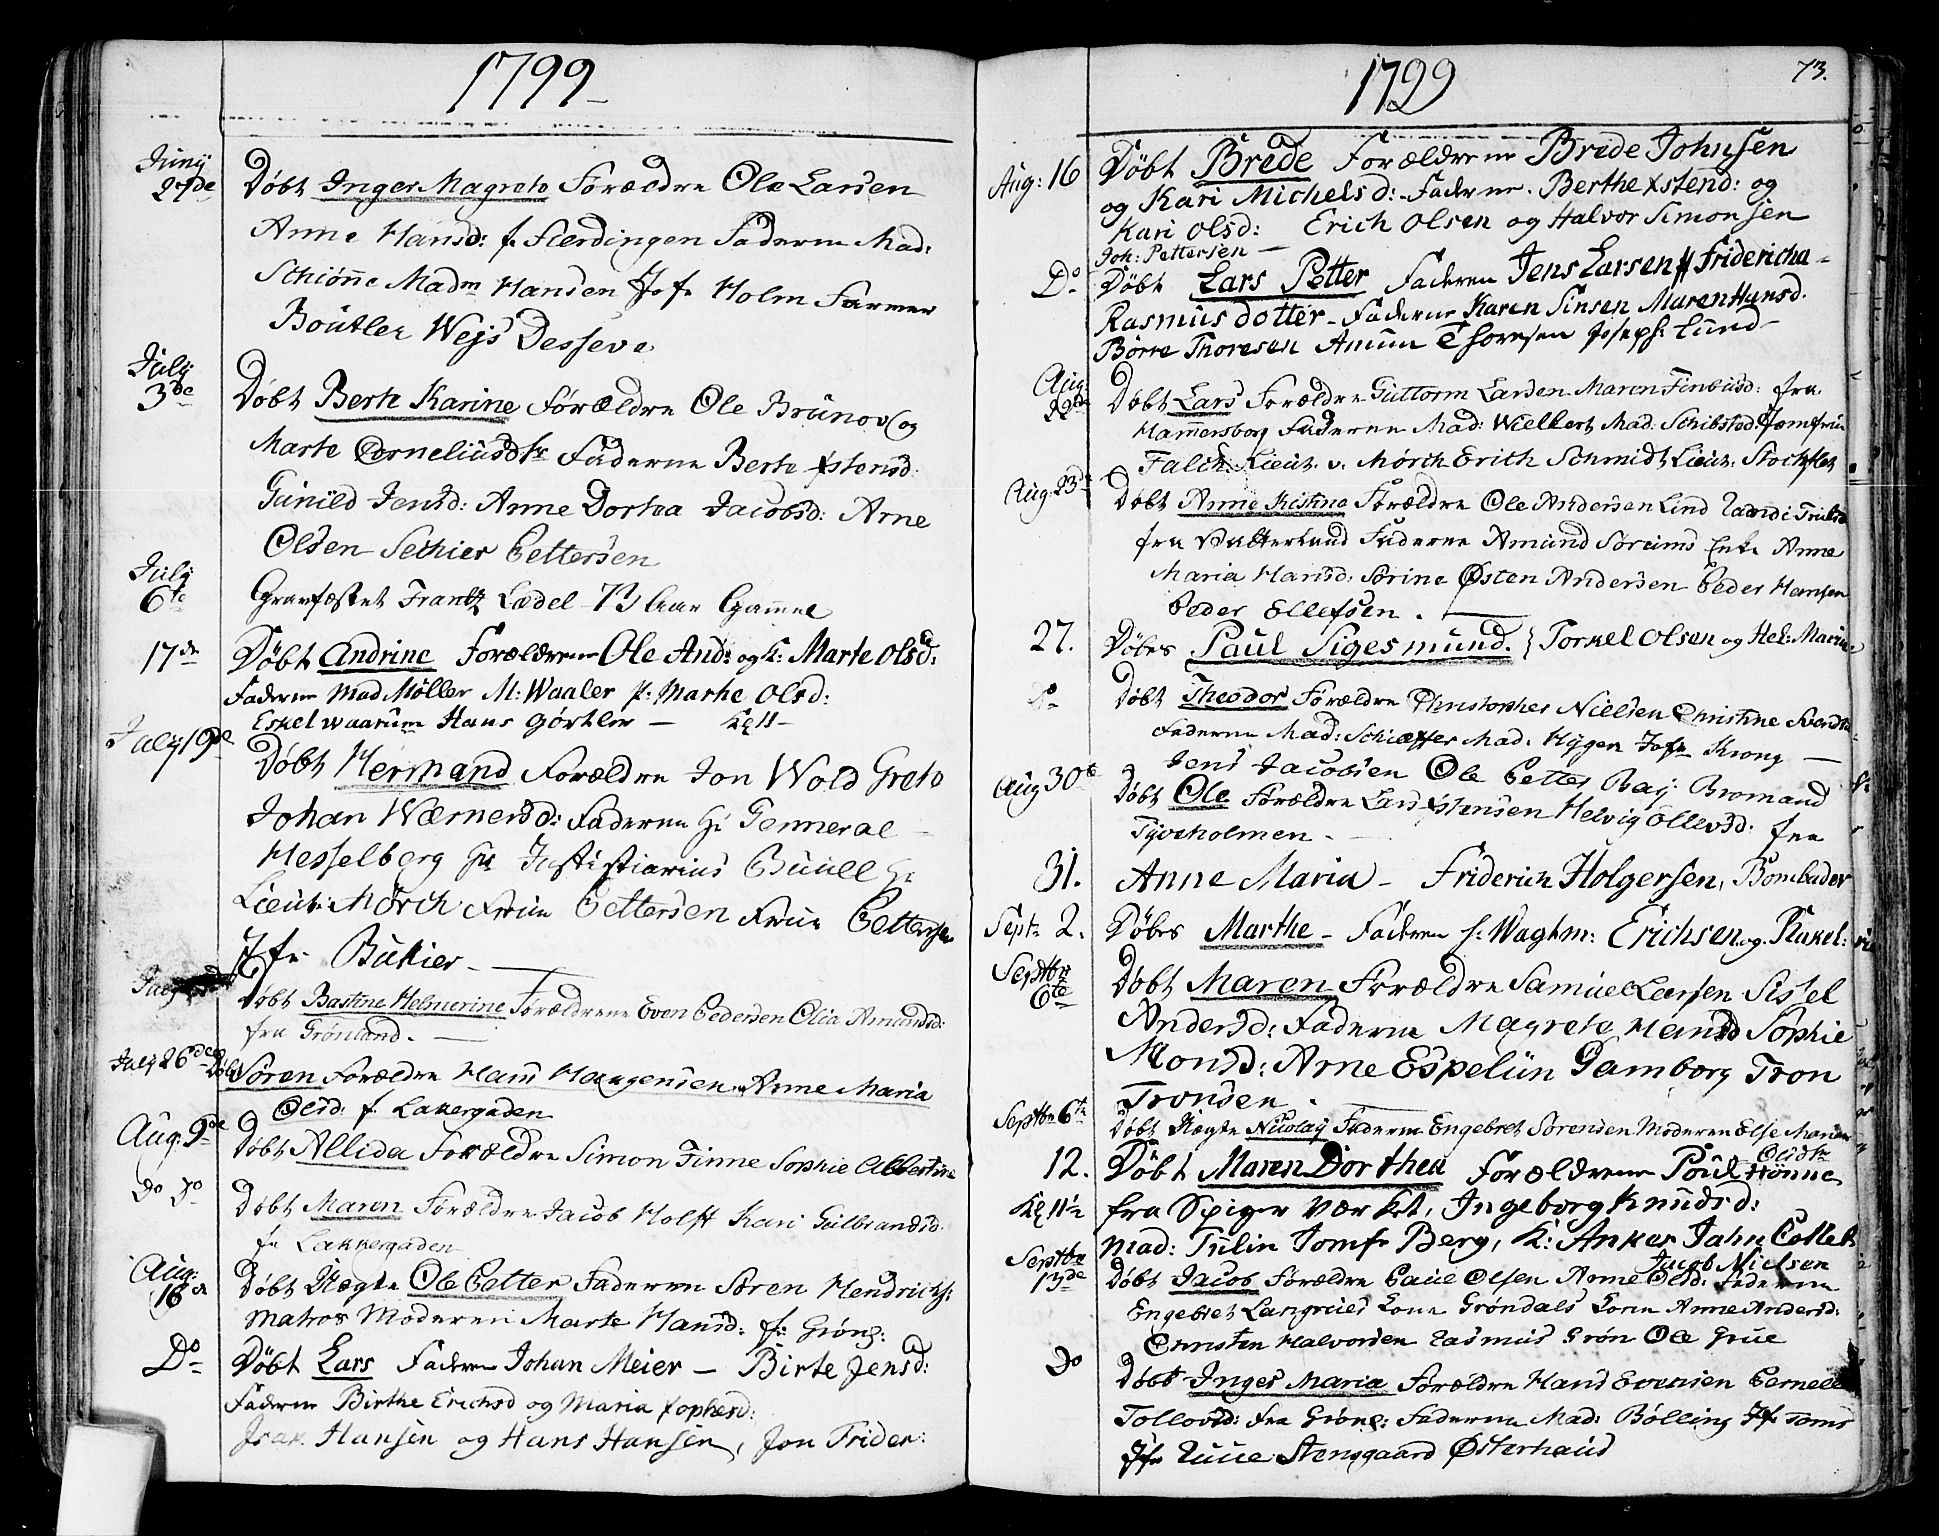 1799
Junij 27de Døbt Inger Magrete Forældre Ole Larsen
Anne Hansd: f. Fierdingen Faderne Mad:
Schiønne Madm Hansen Jfr Holm Farmer
Boutler Wejs Desseve
July 3de Døbt Berte Karine Forældre Ole Brunov og
Marte Corneliusdtr Faderne Berte Xstensd:
Gunild Jensd: Anne Dortea Jacobsd: Arne
Olsen Sechier Pettersen
July 6te Gravfæstet Frantz Ladel 73 Aar Gamel
17de Døbt Andrine Forældrene Ole And: og K: Marte Olsd:
Faderne Mad Møller M: Waaler p: Marhe Olsd:
Eskel Waarum Hans Gørtler — Kl 11 —
July 19de Døbt Hermand Forældre Jon Wold Grete
Johan Wærnersd: Faderne Hr Genneral
Hesselberg Hr Justistiarius Buull Hr
Lieut: Mørch Frue Pettersen Frue Pettersen
Jfr Bukier —
July Døbt Bastine Helmerine Forældrene Even Pedersen Olia Amundsd:
fra Grønland. —
July 26de Døbt Søren Forældre Hans Haagensen Anne Maria
Olsd: f. Lakkergaden
Aug: 9de Døbt Allida Forældre Simon Finne Sophie Albertine
Do Do Døbt Maren Forældre Jacob Holst Kari Gulbrandsd.
fr Lakkergaden
Aug: 16de Døbt Uægte Ole Petter Faderen Søren Hendrichs:
Matros Moderen Marte Hansd: fr Grønl:
Do Døbt Lars Faderen Johan Meier — Birte Jensd:
Faderne Birthe Erichsd og Maria Xophersd:
Isak Hansen og Hans Hansen, Jon Frider:
1799 73.
Aug: 16 Døbt Brede Forældrene Brede Johnsen
og Kari Michelsd: Faderne. Berthe Xstensd: og
Kari Olsd: Erich Olsen og Halvor Simonsen
Joh: Pettersen —
Do Døbt Lars Petter Faderen Jens Larsen // Fridericha
Rasmusdotter — Faderne Karen Jinsen Maren Hansd.
Børre Thoresen Amun Thoresen Joseph: Lund
Aug: 22de Døbt Lars Forældre Guttorm Larsen Maren Finbusd: fra
Hammersborg Faderne Mad: Wielbert Mad: Schibsted Jomfrue
Falch Lieut. v. Mørch Erich Schmidt Lieut: Stockflet
Aug: 23de Døbt Anne Kistine Forældre Ole Andersen Lind Randi Trulsd
fra Vatterland Faderne Amund Sørums Enke Anne
Maria Hansd: Sorine Østen Andersen Peder Hansen
Peder Ellefsen. —
27. Døbes Paul Sigesmund. } Torkel Olsen og Hel: Marin
Do Døbt Theodor Forældre Christopher Nielsen Christine
Faderne Mad: Schieffer Mad: Hygen Jofr Krong —
Jens Jacobsen Ole Petter Basj Bromand
Aug 30te Døbt Ole Forældre Lars Xstensen Helvig Ollevsd: fra
Tyveholmen. —
31. Anne Maria — Friderich Holgersen, Bombader
Septr 2. Døbes Marthe — Faderen s. Waghm: Erichsen og Rakel:
Septbr 6te Døbt Maren Forældre Samuel Larsen Sissel
Andersd: Faderne Magrete Hansd Sophie
Monsd: Arne Espelün Gamborg Tron
Tronsen.
Septbr 6te Døbt Uægte Nicolaj Faderen Engebret Sørensen Moderen Else Maria
Olsdtr
12. Døbt Maren Dorthea Forældrene Poul Hønne
Kl 11½ fra Spiger Værket, Ingeborg Knudsd:
Mad: Tulin Jomfr Berg, K: Anker Jahn Collet
Jacob Nielsen
Septbr 13de Døbt Jacob Forældre Paul Olsen Anne Olsd: Faderne
Engebret Langruds Kone Grøndals Kone Anne Andersd:
Christen Halvorsen Rasmus Grøn Ole Grue
Do Døbt Inger Maria Forældre Hans Evensen Pernelle
Tollovsd: fra Grønl: Faderne Mad: Bølling Jfr
Jfr Stensgaard Østerhaus